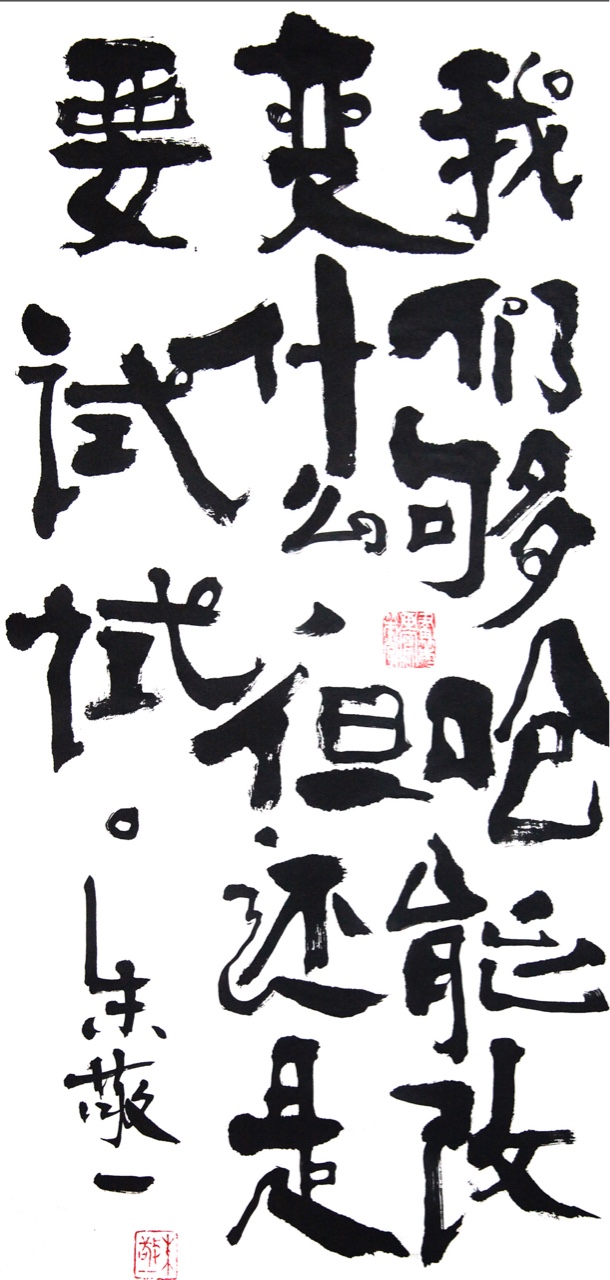 我们够呛能改
变什么，但还是
要试试。
朱敬一